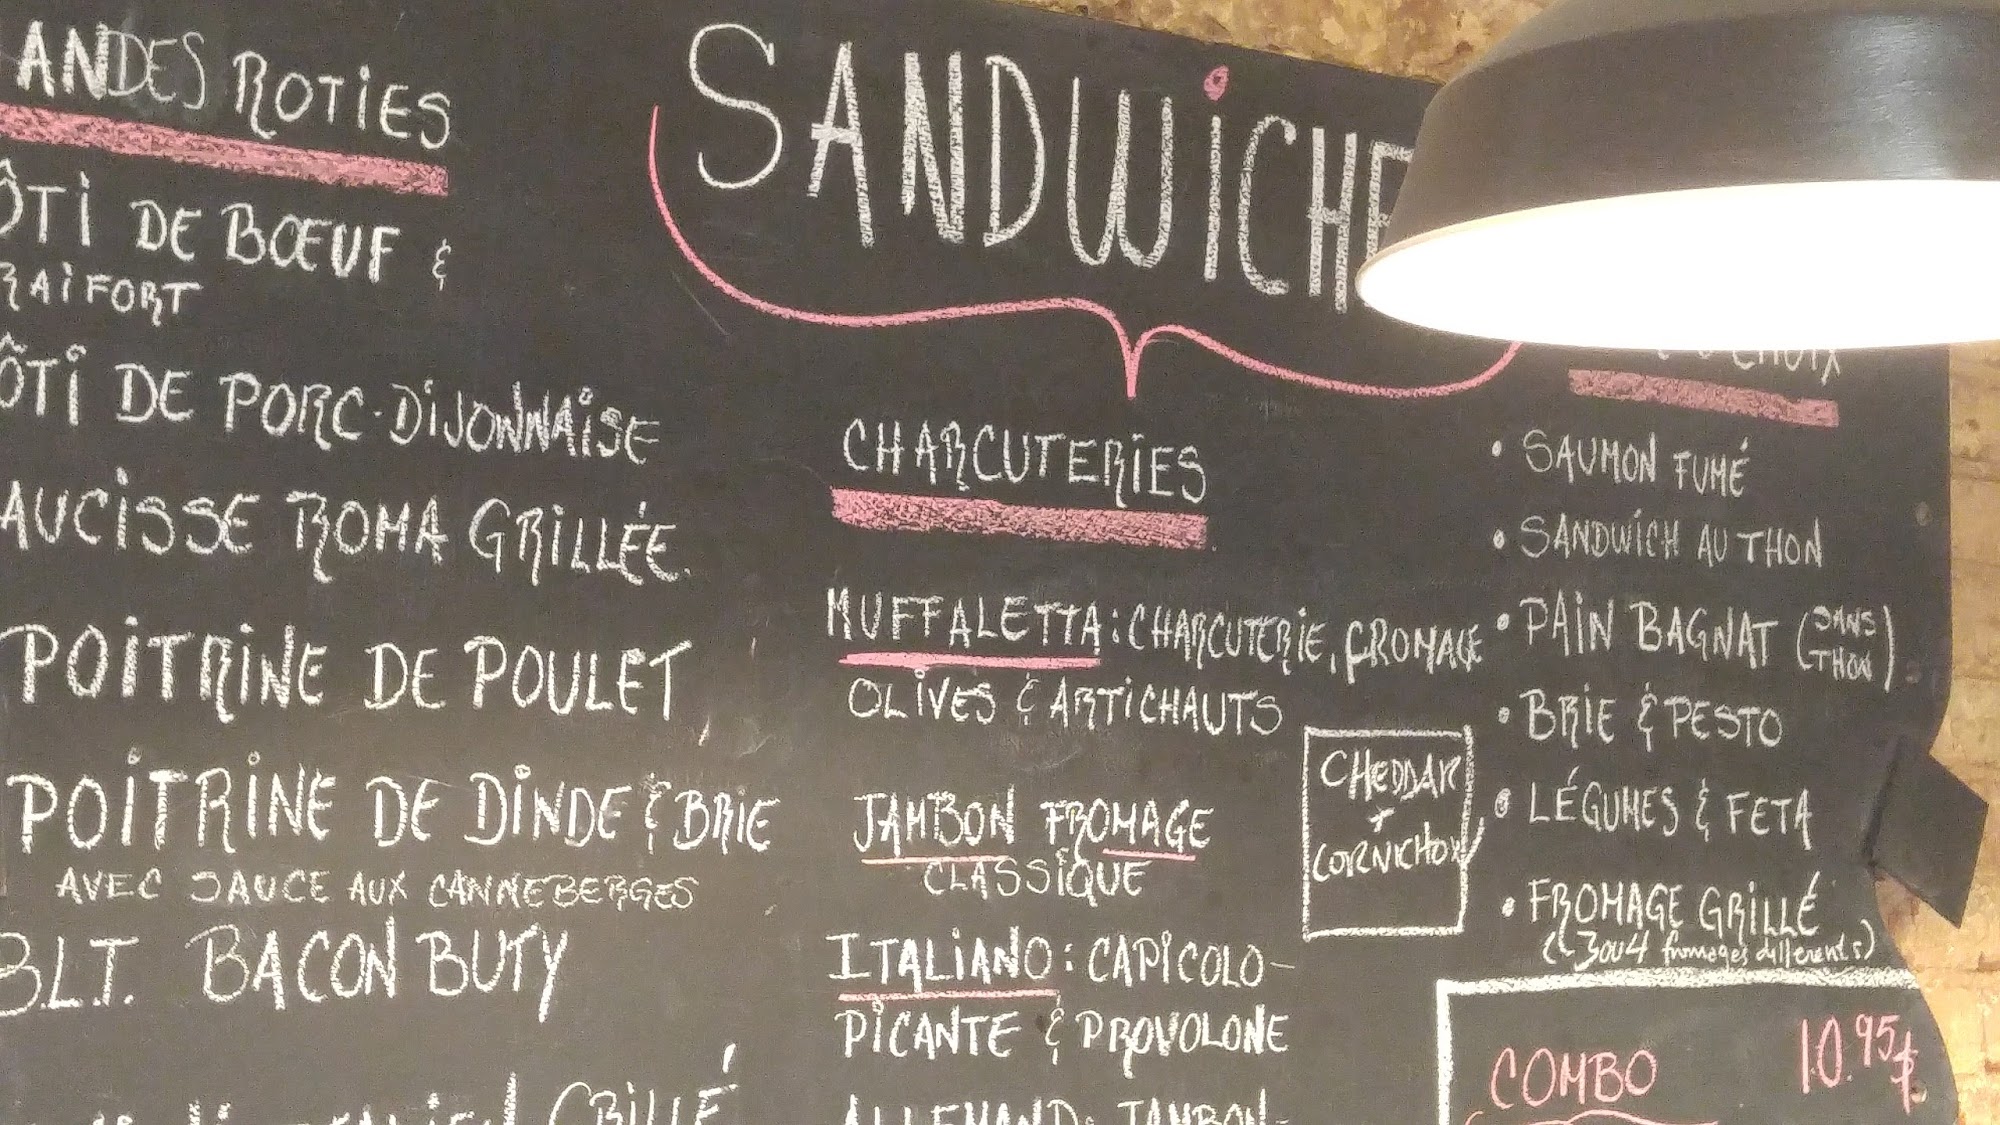 ANDES ROTIES
ÔTI DE BŒUF &
RAIFORT
ÔTI DE PORC-DIJONNAISE
AUCISSE ROMA GRILLÉE.
POITRINE DE POULET
POITRINE DE DINDE & BRIE
AVEC SAUCE AUX CANNEBERGES
B.L.T. BACON BUTY
GRILLÉ
SANDWICHE
CHARCUTERIES
MUFFALETTA: CHARCUTERIE, FROMAGE
OLIVES & ARTICHAUTS
JAMBON FROMAGE
CLASSIQUE
CHEDDAR
+
CORNICHON
ITALIANO: CAPICOLO-
PICANTE & PROVOLONE
ALLEMAND: JAMBON-
CHOIX
• SAUMON FUMÉ
• SANDWICH AU THON
• PAIN BAGNAT (SANS THON)
• BRIE & PESTO
• LÉGUMES & FETA
• FROMAGE GRILLÉ
(3 ou 4 fromages différents)
COMBO 10.95$